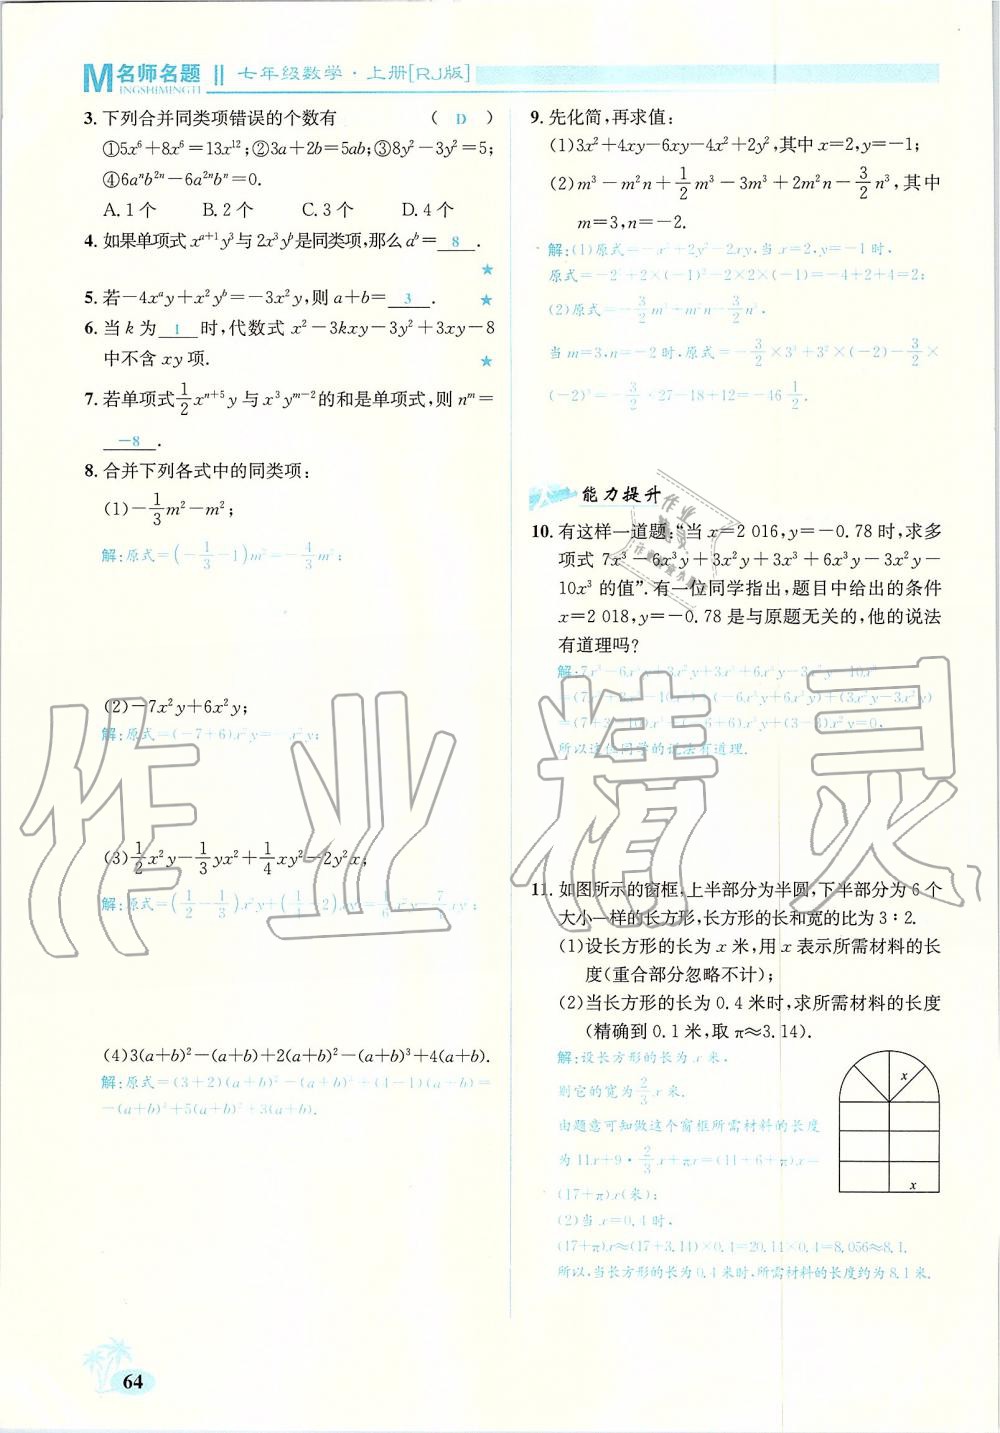 M名师名题 七年级数学·上册[RJ版]
INGSHIMINGTI
3. 下列合并同类项错误的个数有 ( D )
①5x⁶+8x⁶=13x¹²;②3a+2b=5ab;③8y²-3y²=5;
④6aⁿb²ⁿ-6a²ⁿbⁿ=0.
A. 1个 B. 2个 C. 3个 D. 4个
4. 如果单项式 xᵃ⁺¹y³与 2x³yᵇ是同类项,那么 aᵇ= 8 .
★
5. 若-4xᵃy+x²yᵇ=-3x²y,则 a+b= 3 . ★
6. 当 k 为 1 时,代数式 x²-3kxy-3y²+3xy-8
中不含 xy 项. ★
7. 若单项式 1/2 xⁿ⁺⁵y 与 x³yᵐ⁻²的和是单项式,则 nᵐ=
-8 .
8. 合并下列各式中的同类项:
(1)-1/3 m²-m²;
解:原式=(-1/3-1)m²=-4/3 m²;
(2)-7x²y+6x²y;
解:原式=(-7+6)x²y=-x²y;
(3)1/2 x²y-1/3 yx²+1/4 xy²-2y²x;
解:原式=(1/2-1/3)x²y+(1/4-2)xy²=1/6 x²y-7/4 xy²;
(4)3(a+b)²-(a+b)+2(a+b)²-(a+b)³+4(a+b).
解:原式=(3+2)(a+b)²-(a+b)³+(4-1)(a+b)=
-(a+b)³+5(a+b)²+3(a+b).
9. 先化简,再求值:
(1)3x²+4xy-6xy-4x²+2y²,其中 x=2,y=-1;
(2)m³-m²n+1/2 m³-3m³+2m²n-3/2 n³,其中
m=3,n=-2.
解:(1)原式=-x²+2y²-2xy,当 x=2,y=-1 时,
原式=-2²+2×(-1)²-2×2×(-1)=-4+2+4=2;
(2)原式=-3/2 m³+m²n-3/2 n³,
当 m=3,n=-2 时,原式=-3/2×3³+3²×(-2)-3/2×
(-2)³=-3/2×27-18+12=-46 1/2.
能力提升
10. 有这样一道题:“当 x=2 016,y=-0.78 时,求多
项式 7x³-6x³y+3x²y+3x³+6x³y-3x²y-
10x³ 的值”. 有一位同学指出,题目中给出的条件
x=2 018,y=-0.78 是与原题无关的,他的说法
有道理吗?
解:7x³-6x³y+3x²y+3x³+6x³y-3x²y-10x³
=(7x³+3x³-10x³)+(-6x³y+6x³y)+(3x²y-3x²y)
=(7+3-10)x³+(-6+6)x³y+(3-3)x²y=0,
所以这位同学的说法有道理.
11. 如图所示的窗框,上半部分为半圆,下半部分为 6 个
大小一样的长方形,长方形的长和宽的比为 3∶2.
(1)设长方形的长为 x 米,用 x 表示所需材料的长
度(重合部分忽略不计);
(2)当长方形的长为 0.4 米时,求所需材料的长度
(精确到 0.1 米,取 π≈3.14).
解:设长方形的长为 x 米,
则它的宽为 2/3 x 米.
由题意可知做这个窗框所需材料的长度
为 11x+9·2/3 x+πx=(11+6+π)x=
(17+π)x(米);
(2)当 x=0.4 时,
(17+π)x≈(17+3.14)×0.4=20.14×0.4=8.056≈8.1,
所以,当长方形的长为 0.4 米时,所需材料的长度约为 8.1 米.
x
x
作业精灵
64